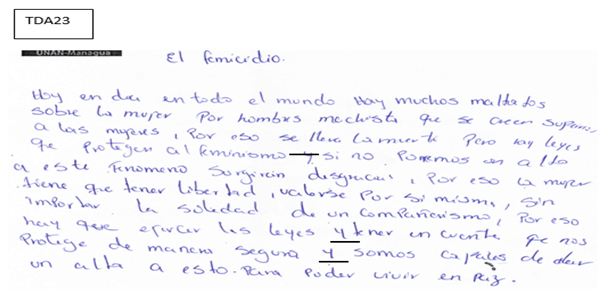 TDA23
UNAN-Managua
El femicidio.
Hoy en dia en todo el mundo Hay muchos maltatos
sobre la mujer Por hombres machista que se creen
a las mujeres, Por eso se lleva la muerte Pero hay leyes
que Protegen al feminismo y si no Ponemos un alto
a este fenomeno surgirán desgracias, Por eso la mujer
tiene que tener libertad, valorse Por si misma, sin
importar la soledad de un compañerismo, Por eso
hay que ejercer las leyes y tener un cuenta que nos
Protige de manera segura y somos capases de dar
un alta a esto. Para Poder vivir en Paz.